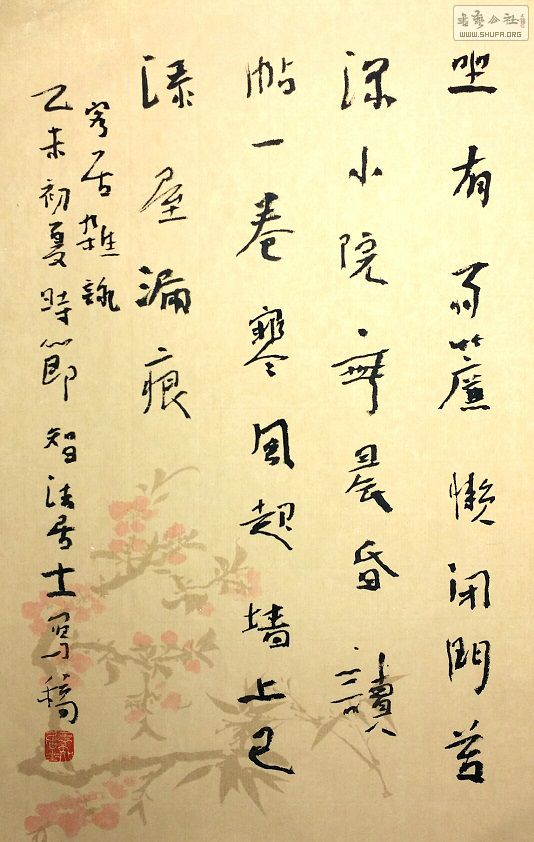 坐有簾懶闭門苔
深小院無晨昏讀
帖一卷寒風起墙上已
添屋漏痕
客居雜詠
乙未初夏時節智法居士寫稿
书艺公社
WWW.SHUFA.ORG